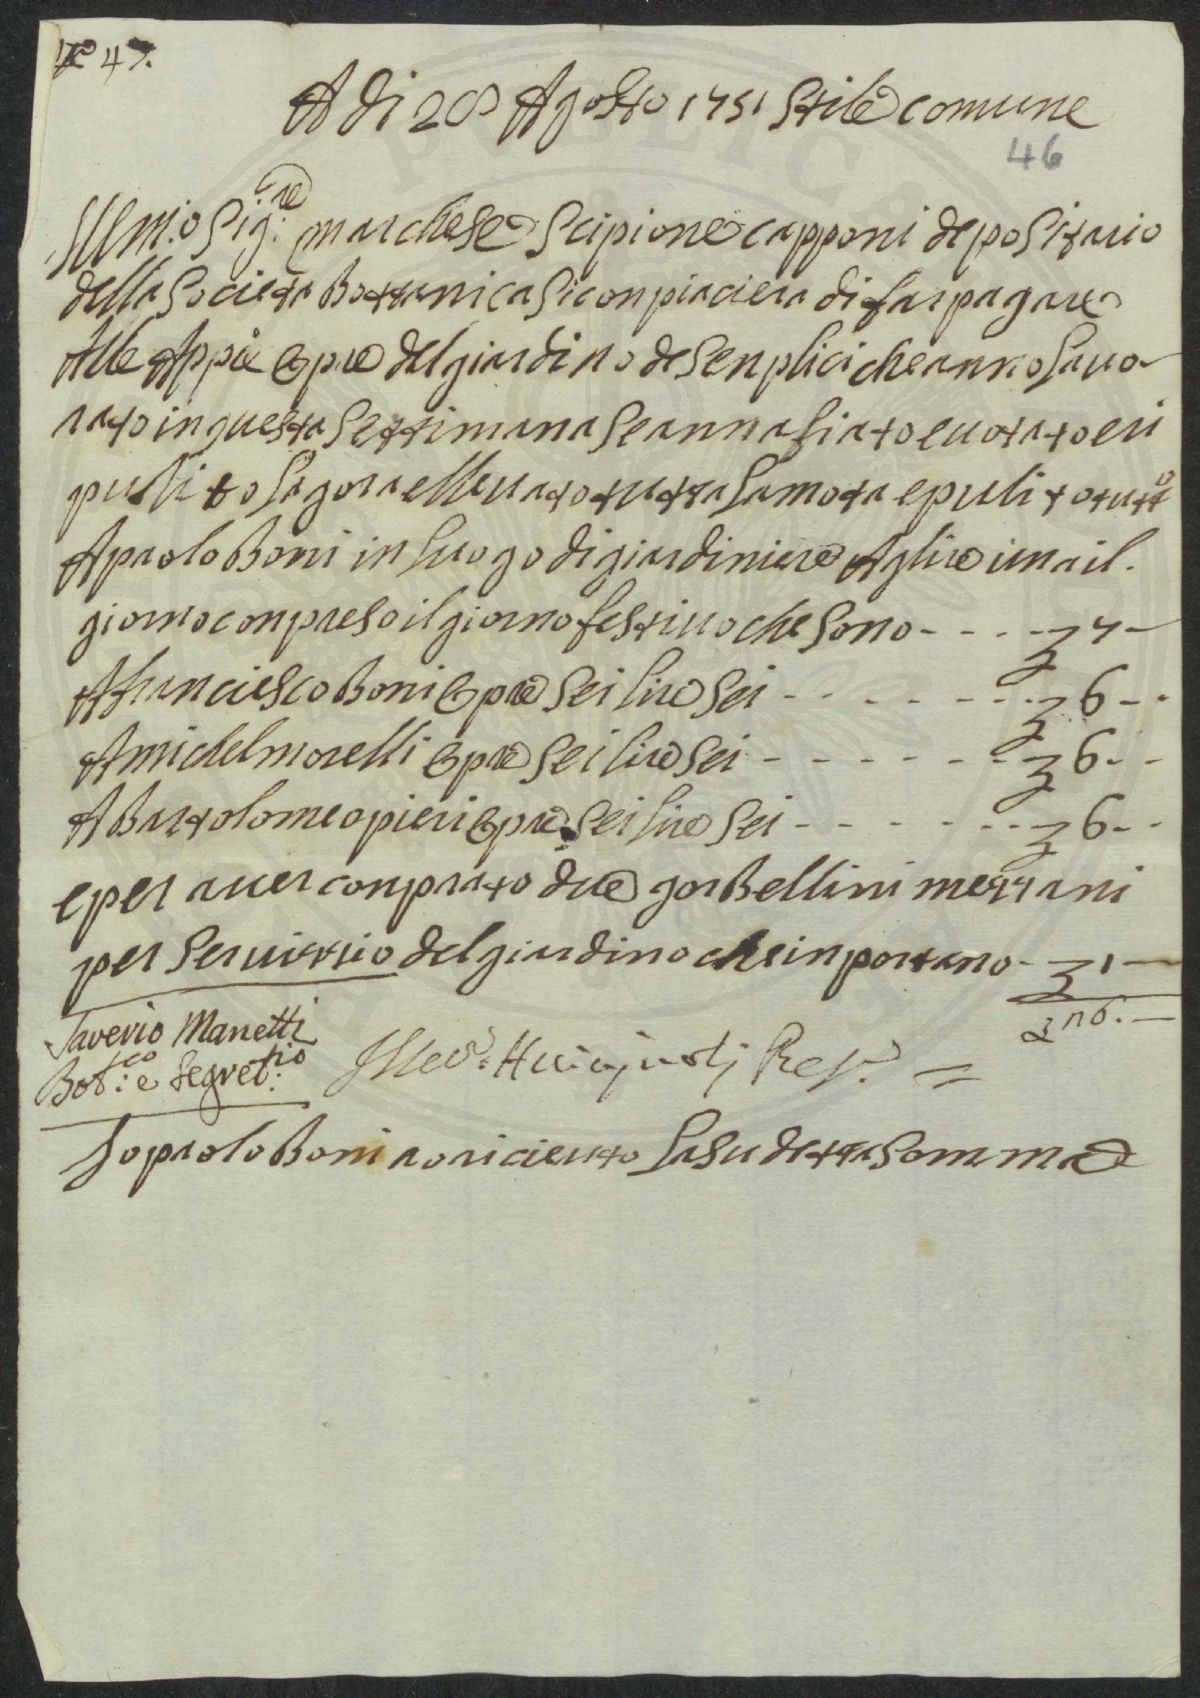 No 47.
A di 28 Agosto 1751 Stile comune
46
Illm.o Sig.re marchese Scipione capponi depositario
della Societa Bottanica Si conpiaciera di far pagare
Alle Appie Opre del giardino de Senplici che anno lauo
rato in questa Settimana Se annafiato e uotato e ri
pulito la gora e lleuato tutta la mota e pulito tutto
A paolo Boni in luogo di giardiniere A lire una il
giorno conpreso il giorno festiuo che Sono - - - - 7 -
A franciesco Boni Opre Sei lire Sei - - - - - - 6 - -
A michel morelli Opre Sei lire Sei - - - - - - 6 - -
A Bartolomeo pieri Opre Sei lire Sei - - - - - - 6 - -
e per auer conprato due gorBellini mezzani
per Seruizzio del giardino che inportano - 1 -
26. -
Saverio Manetti
Bot:co e Segret:rio
Io paolo Boni o riceuto la Su detta Somma